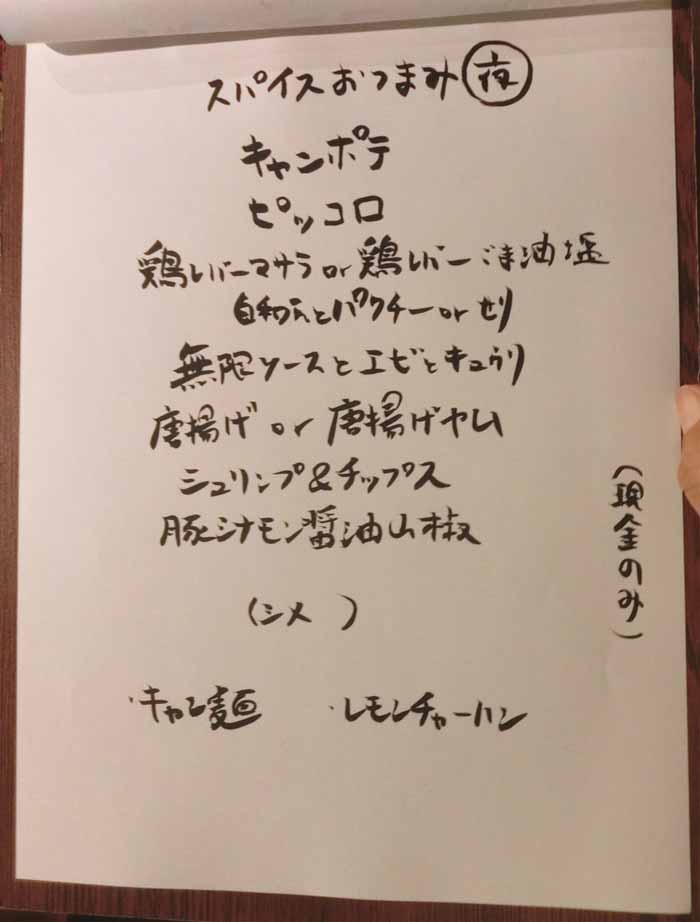 スパイスおつまみ 夜
キャンポテ
ピッコロ
鶏レバーマサラor鶏レバーごま油塩
とパクチーorセリ
無限ソースとエビとキュウリ
唐揚げ or 唐揚げヤム
シュリンプ&チップス
豚シナモン醤油山椒
(現金のみ)
(シメ )
・キャン麺 ・レモンチャーハン